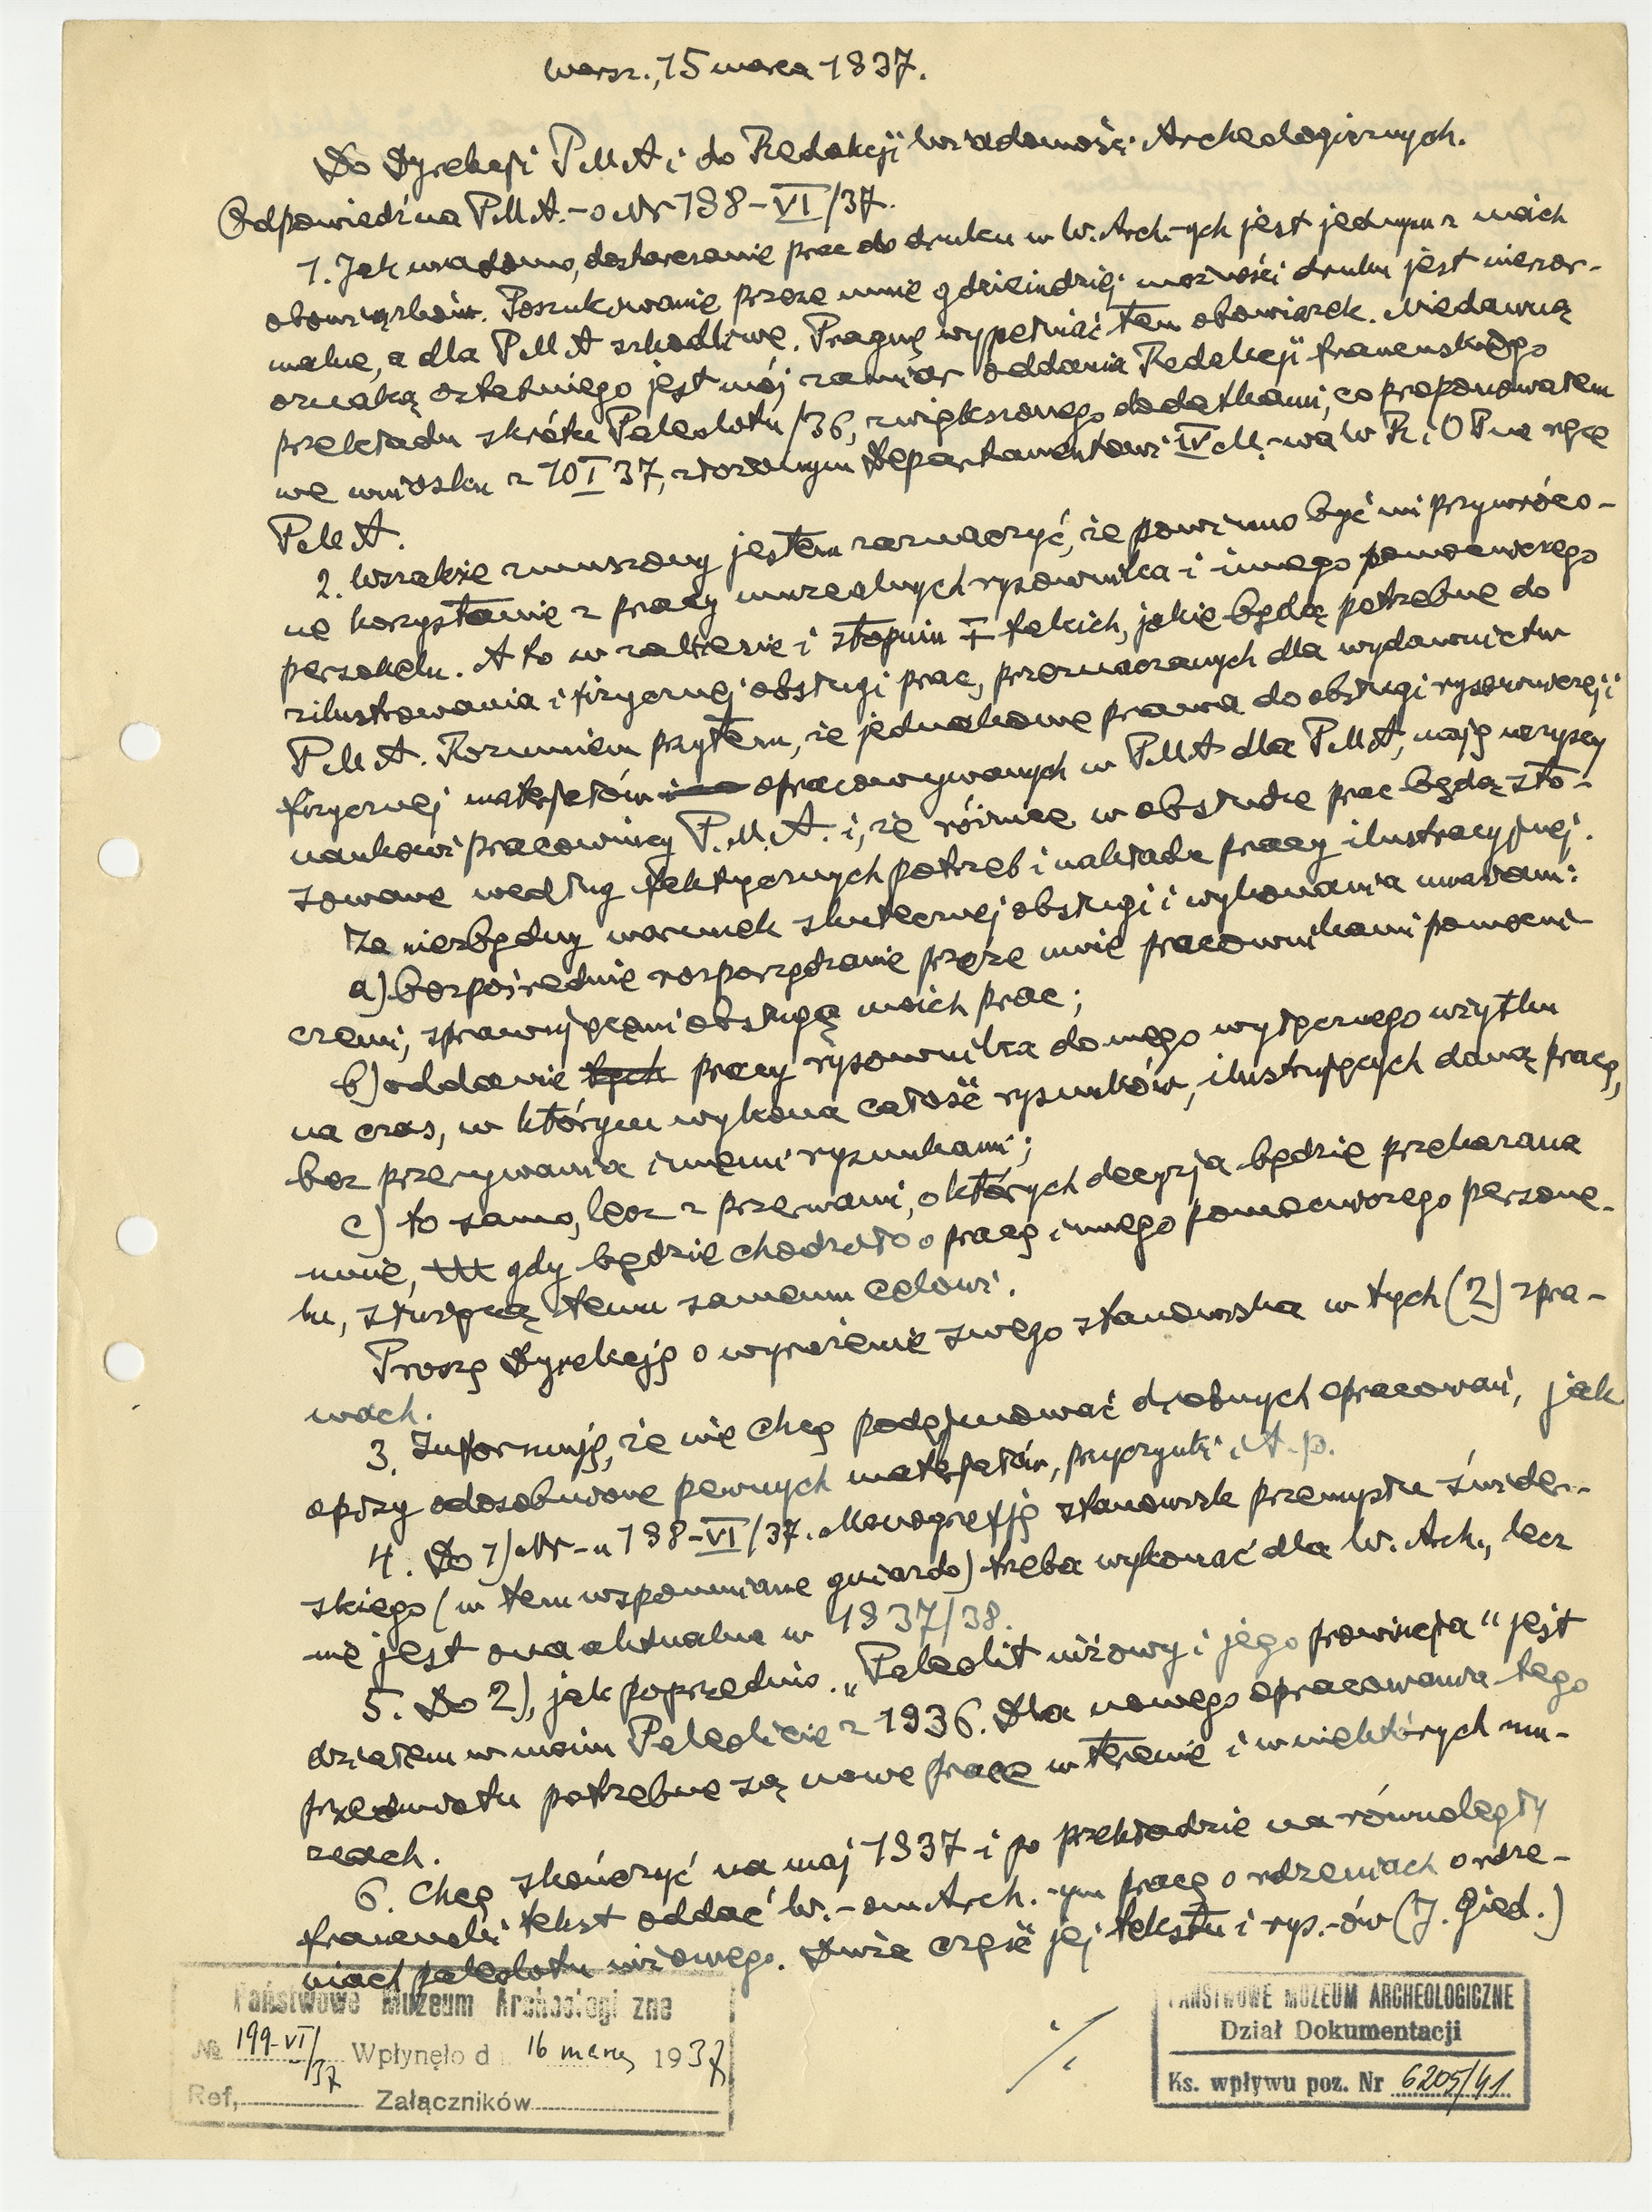 Warsz., 15 marca 1937.
Do Dyrekcji PMA i do Redakcji Wiadomości Archeologicznych.
Odpowiedź na P.M.A.-o Nr 198-VI/37.
1. Jak wiadomo, dostarczanie prac do druku w W. Arch.-ych jest jednym z moich
obowiązków. Poszukiwanie przeze mnie gdzieindziej możności druku jest nienor-
malne, a dla PMA szkodliwe. Pragnę wypełniać ten obowiązek. Niedawną
oznaką ostatniego jest mój zamiar oddania Redakcji francuskiego
przekładu skrótu Paleolitu/36, zwiększonego dodatkami, co proponowałem
we wniosku z 10 I 37, złożonym Departamentowi IV M.-wa W R i O P na ręce
PMA.
2. Wszakże zmuszony jestem zaznaczyć, że powinno być mi przywróco-
ne korzystanie z pracy muzealnych rysownika i innego pomocniczego
personelu. A to w zakresie i stopniu takich, jakie będą potrzebne do
zilustrowania i fizycznej obsługi prac, przeznaczanych dla wydawnictw
P.M.A. Rozumiem przytem, że jednakowe prawa do obsługi rysowniczej i
fizycznej materjałów opracowywanych w PMA dla PMA, mają wszyscy
naukowi pracownicy P.M.A. i, że różnice w obsłudze prac będą sto-
sowane według faktycznych potrzeb i nakładu pracy ilustracyjnej.
Za niezbędny warunek skutecznej obsługi i wykonania uważam:
a) bezpośrednie rozporządzanie przeze mnie pracownikami pomocni-
czemi, sprawującemi obsługę moich prac;
b) oddanie tych pracy rysownika do mego wyłącznego użytku
na czas, w którym wykona całość rysunków, ilustrujących daną pracę,
bez przerywania innemi rysunkami;
c) to samo, lecz z przerwami, o których decyzja będzie przekazana
mnie, gdy będzie chodziło o pracę innego pomocniczego persone-
lu, służącą temu samemu celowi.
Proszę Dyrekcję o wyrażenie swego stanowiska w tych (2) spra-
wach.
3. Informuję, że nie chcę podejmować drobnych opracowań, jak
opisy odosobnione pewnych materjałów, przyczynki i t. p.
4. Do 1) Nr-u 198-VI/37. Monografję stanowisk przemysłu świder-
skiego (w tem wspomniane gniazdo) trzeba wykonać dla W. Arch., lecz
nie jest ona aktualna w 1937/38.
5. Do 2), jak poprzednio. „Paleolit niżowy i jego prowincja" jest
działem w moim Paleolicie z 1936. Dla nowego opracowania tego
przedmiotu potrzebne są nowe prace w terenie i w niektórych mu-
zeach.
6. Chcę skończyć na maj 1937 i po przekładzie na równoległy
francuski tekst oddać W.-om Arch.-ym pracę o rdzeniach o rdze-
niach paleolitu niżowego. Duża część jej tekstu i rys.-ów (J. Gied.)
Państwowe Muzeum Archeologiczne
№ 199-VI/37 Wpłynęło d. 16 marca 1937
Ref. Załączników
·/.
PAŃSTWOWE MUZEUM ARCHEOLOGICZNE
Dział Dokumentacji
Ks. wpływu poz. Nr 6205/41